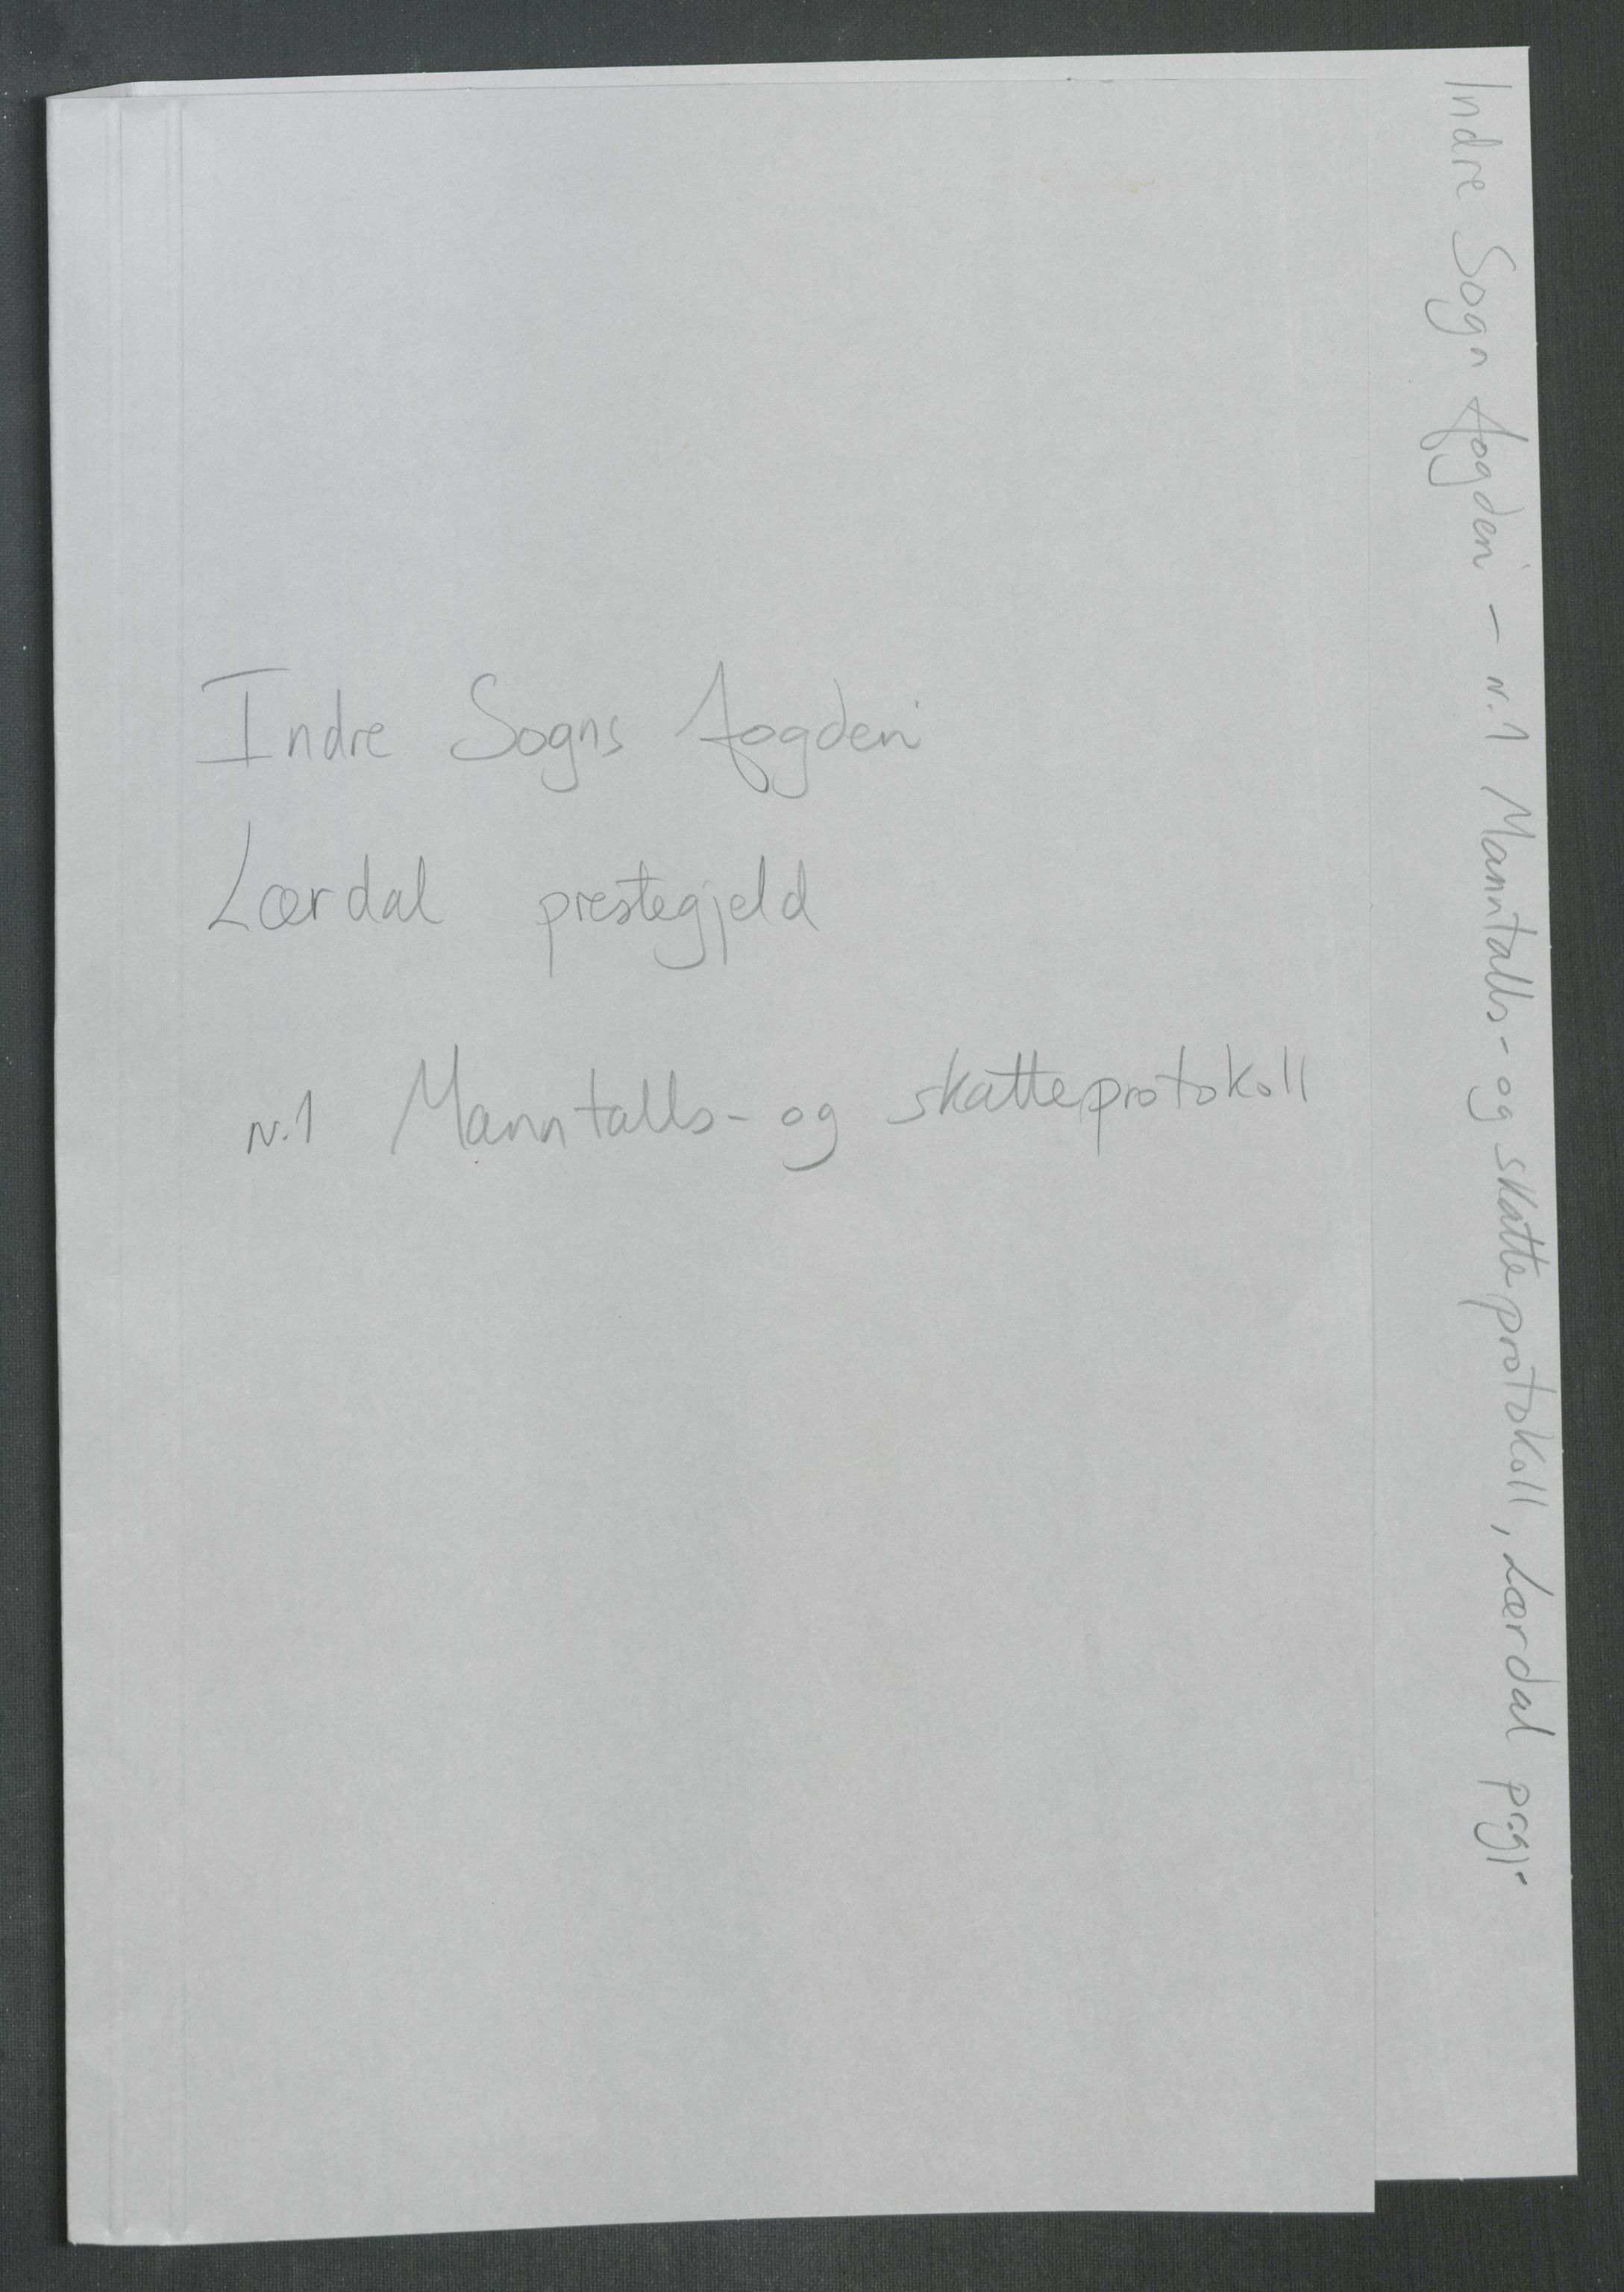 Indre Sogns fogderi
Lærdal prestegjeld
nr.1 Manntalls- og skatteprotokoll
Indre Sogn fogderi - nr.1 Manntalls- og skatteprotokoll, Lærdal prgj.